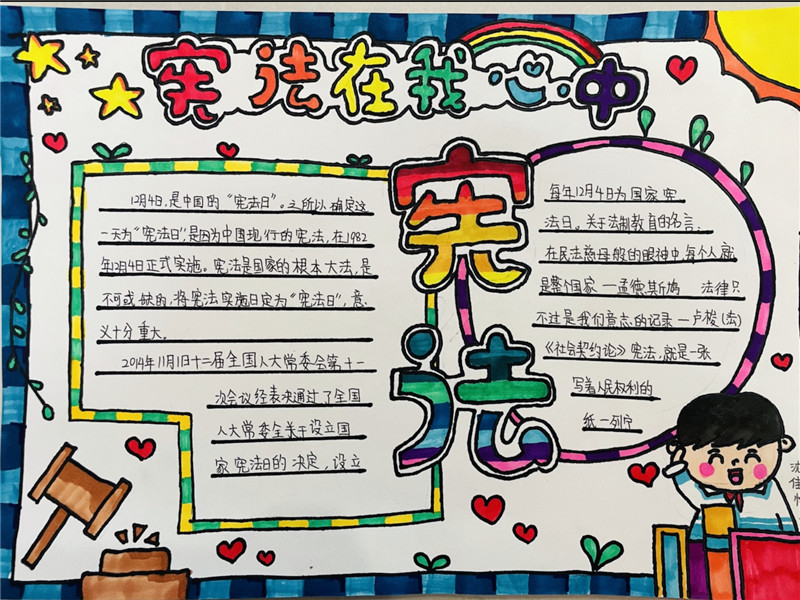 宪法在我心中
宪法
12月4日,是中国的“宪法日”。之所以确定这
一天为“宪法日”,是因为中国现行的宪法,在1982
年12月4日正式实施。宪法是国家的根本大法,是
不可或缺的,将宪法实施日定为“宪法日”,意
义十分重大。
2014年11月1日十二届全国人大常委会第十一
次会议经表决通过了全国
人大常委会关于设立国
家宪法日的决定,设立
每年12月4日为国家宪
法日。关于法制教育的名言,
在民法慈母般的眼神中,每个人就
是整个国家 一孟德斯鸠 法律只
不过是我们意志的记录 一卢梭(法)
《社会契约论》宪法,就是一张
写着人民权利的
纸一列宁
沈
佳